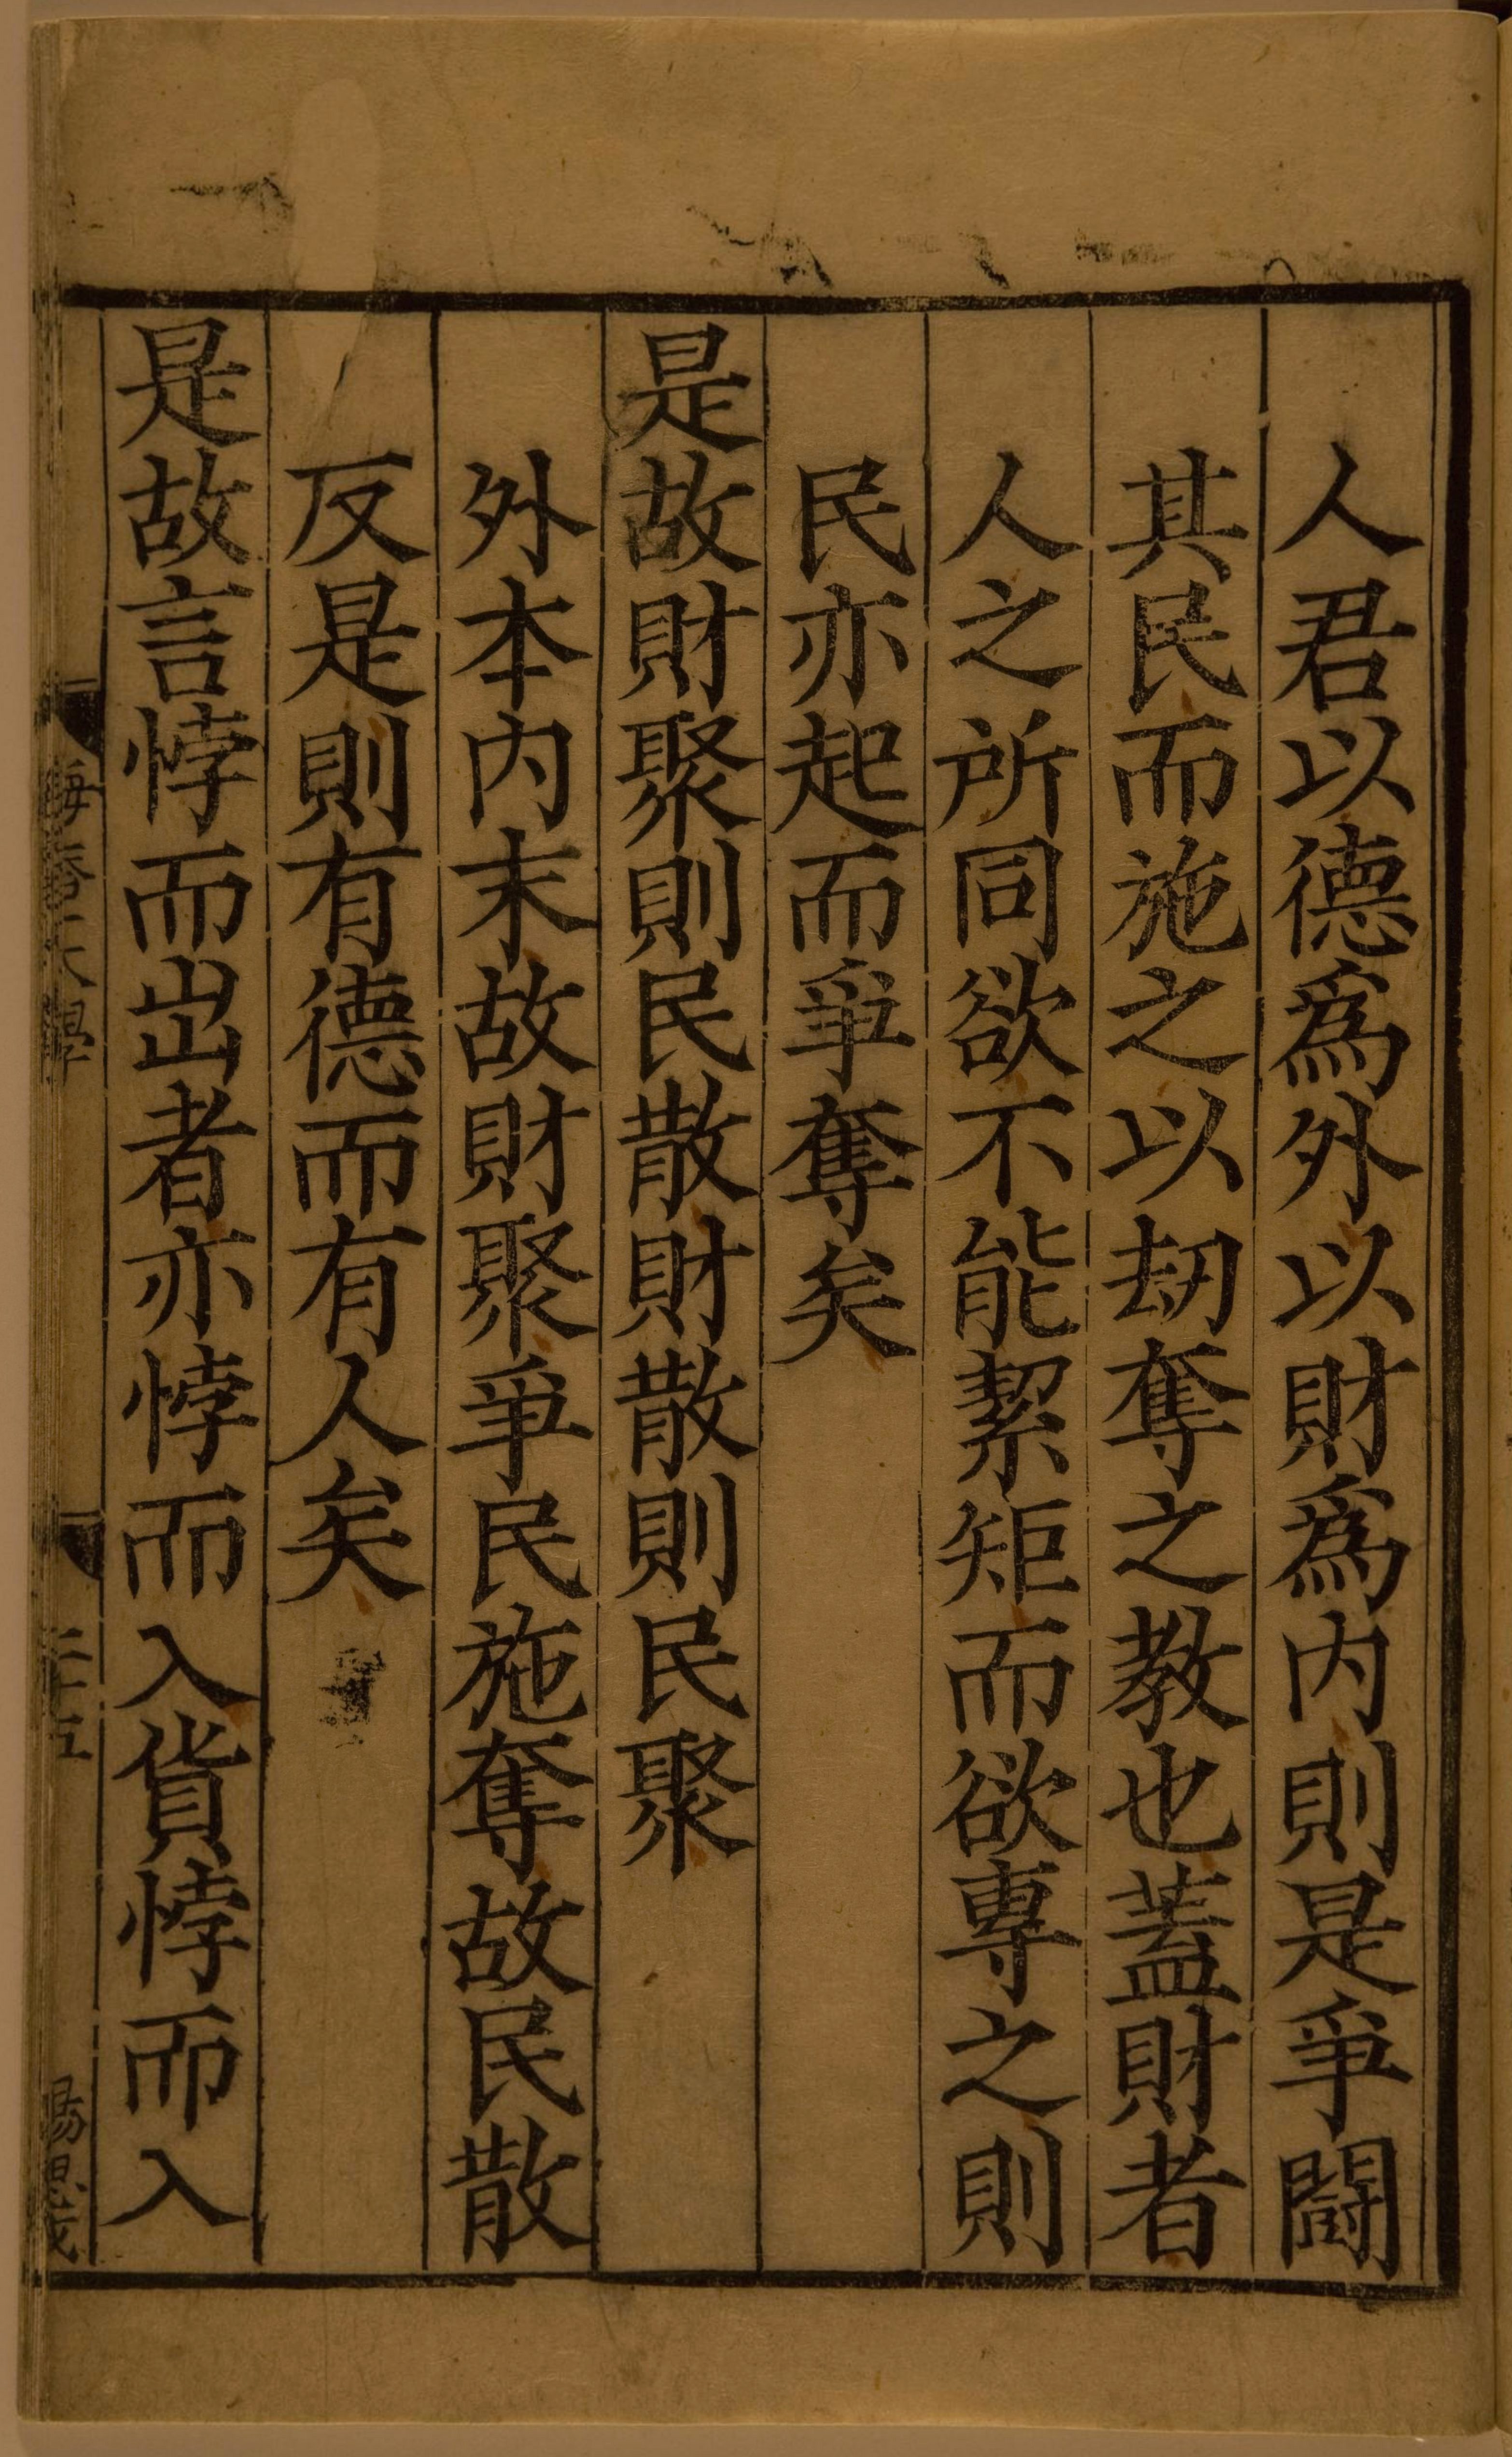 人君以德爲外以財爲内則是爭鬭
其民而施之以刼奪之教也蓋財者
人之所同欲不能絜矩而欲專之則
民亦起而爭奪矣
是故財聚則民散財散則民聚
外本内末故財聚爭民施奪故民散
反是則有德而有人矣
是故言悖而出者亦悖而入貨悖而入